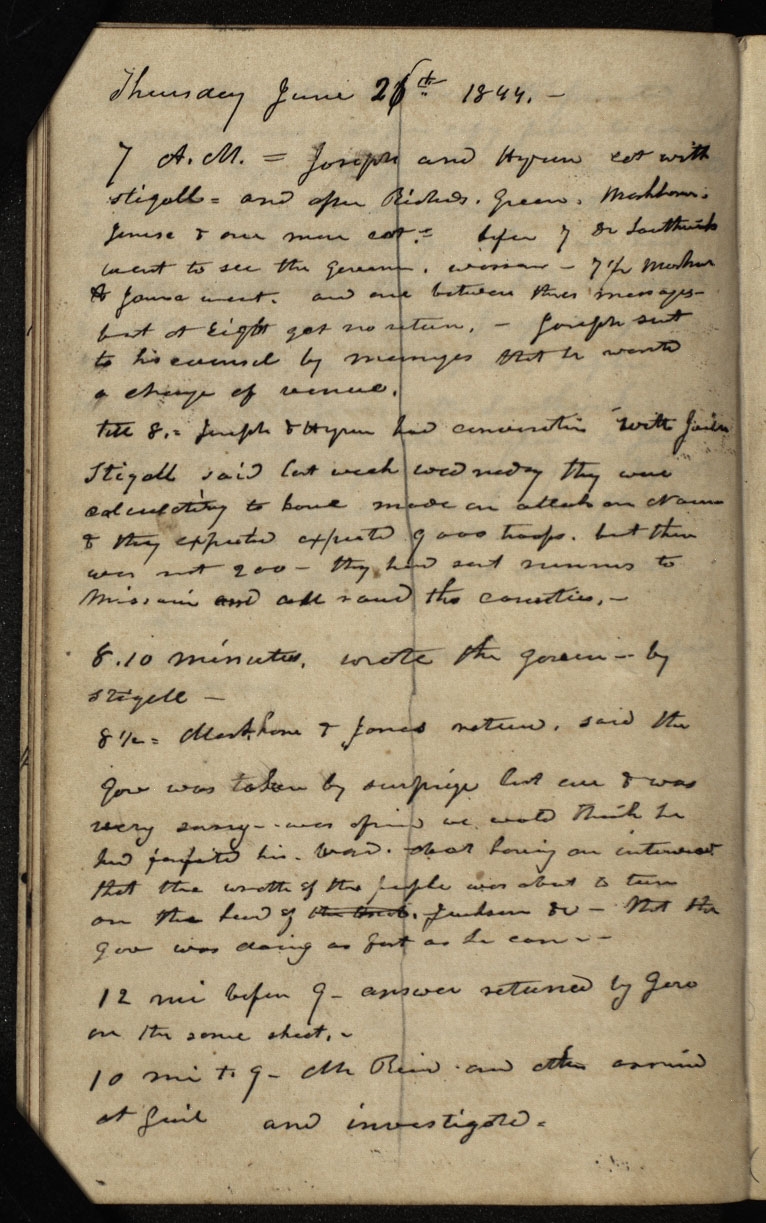 Thursday June 26th 1844. —
7 A.M. = Joseph and Hyrum eat with
Stigall = and after Richards. Green. Markham.
Jones & one more eat. = before 7 Dr Southwick
went to see the Governor. — 7½ Markham
& Jones went. and one between this messages —
but at Eight got no return. — Joseph sent
to his counsel by messenger that he wanted
a change of venue.
till 8. = Joseph & Hyrum had conversation with Jailor
Stigall said last week wednesday they were
calculating to have made an attack on Nauvoo
& they expected expected 9000 troops. but there
was not 200 — they had sent runners to
Missouri and all round the counties. —
8.10 minutes. wrote the govern — by
Stigall —
8½ = Markham & Jones return. said the
Gov was taken by surprize last eve & was
very sorry — was afraid we would think he
had forfeited his word. about having an interview
that the wrath of the people was about to turn
on the head of the Jackson &c — that the
Gov was doing as fast as he can —
12 mi before 9 — answer returned by Gov
on the same sheet. —
10 mi to 9 — Mr Reid and others arrived
at Jail and investigated. =